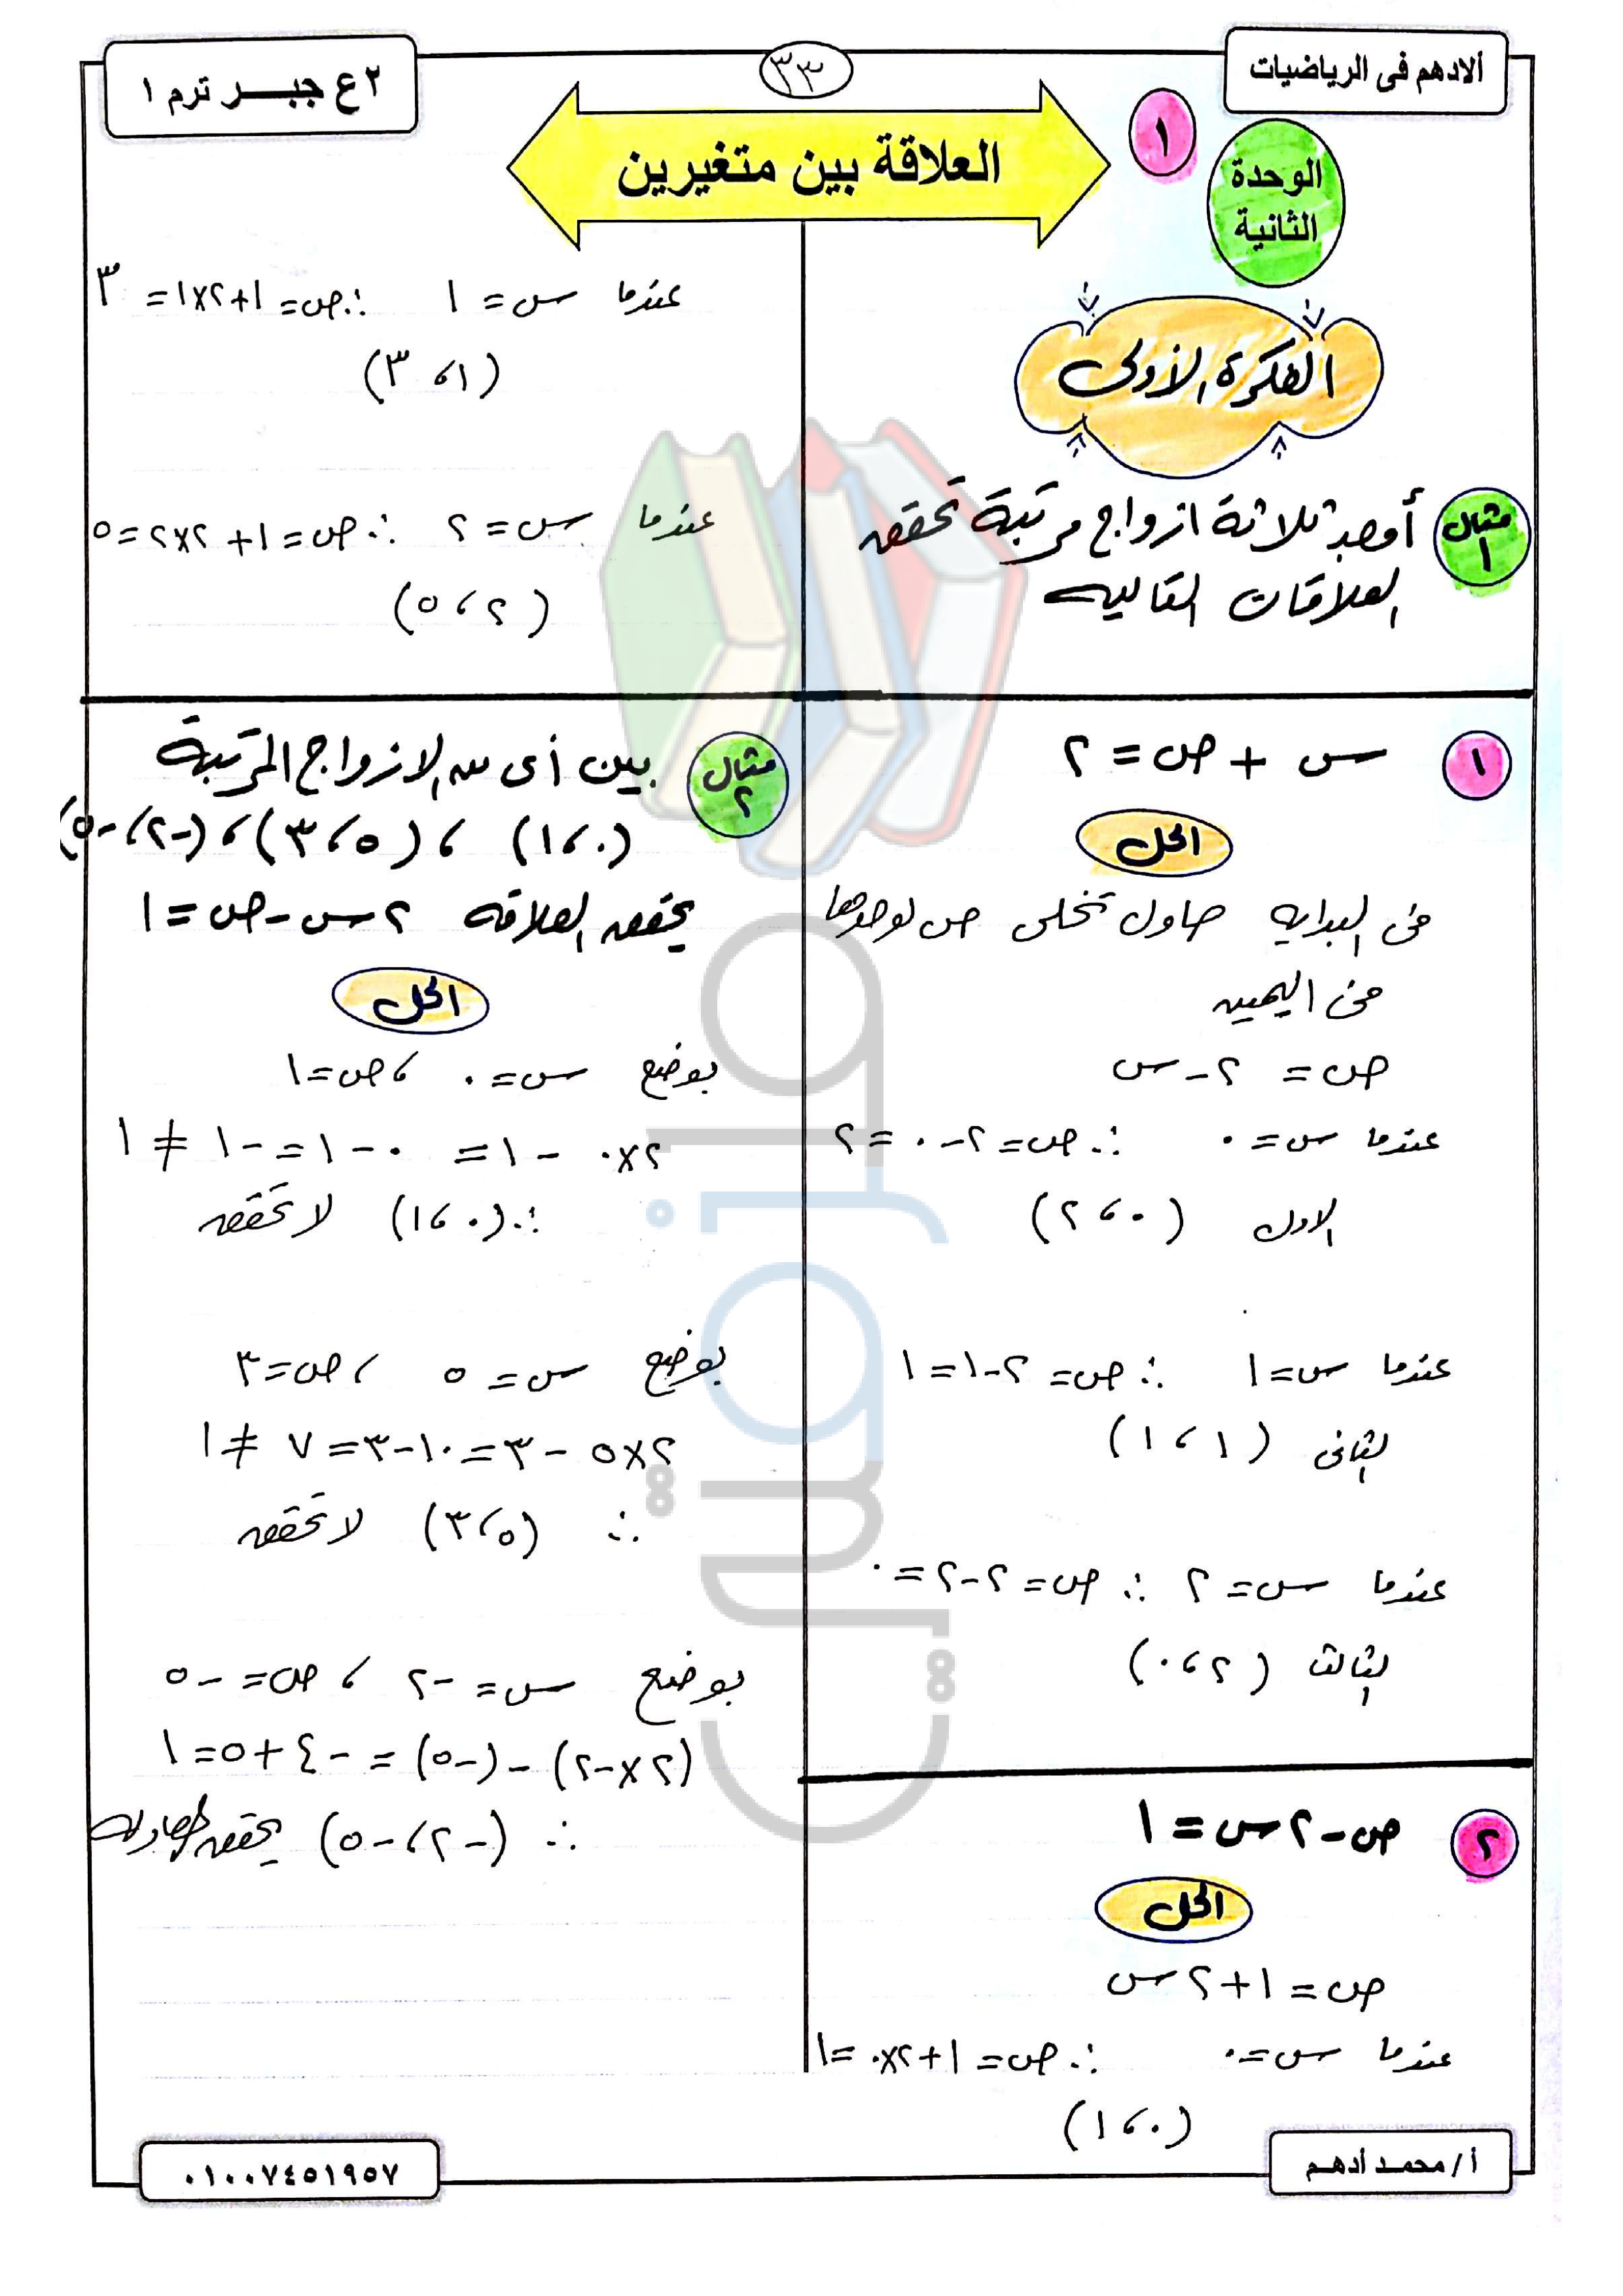 ألادهم فى الرياضيات
٣٣
٢ ع جبـــر ترم ١
العلاقة بين متغيرين
١
الوحدة
الثانية
الفكرة الأولى
مثال ١
أوجد ثلاثة ازواج مرتبة تحقق
العلاقات التاليه
١
س + ص = ٢
الحل
فى البدايه حاول تخلى ص لوحدها
فى اليمين
ص = ٢ - س
عندما س = ٠ ∴ ص = ٢ - ٠ = ٢
الاول (٠ ، ٢)
عندما س = ١ ∴ ص = ٢ - ١ = ١
الثانى (١ ، ١)
عندما س = ٢ ∴ ص = ٢ - ٢ = ٠
الثالث (٢ ، ٠)
٢
ص - ٢س = ١
الحل
ص = ١ + ٢س
عندما س = ٠ ∴ ص = ١ + ٢×٠ = ١
(٠ ، ١)
عندما س = ١ ∴ ص = ١ + ٢×١ = ٣
(١ ، ٣)
عندما س = ٢ ∴ ص = ١ + ٢×٢ = ٥
(٢ ، ٥)
مثال ٢
بين أى من الازواج المرتبة
(٠ ، ١) ، (٥ ، ٣) ، (-٢ ، -٥)
يحقق العلاقه ٢س - ص = ١
الحل
بوضع س = ٠ ، ص = ١
٢×٠ - ١ = ٠ - ١ = -١ ≠ ١
∴ (٠ ، ١) لا تحقق
بوضع س = ٥ ، ص = ٣
٢×٥ - ٣ = ١٠ - ٣ = ٧ ≠ ١
∴ (٥ ، ٣) لا تحقق
بوضع س = -٢ ، ص = -٥
(٢×-٢) - (-٥) = -٤ + ٥ = ١
∴ (-٢ ، -٥) يحقق المعادلة
أ / محمد أدهم
٠١٠٠٧٤٥١٩٥٧